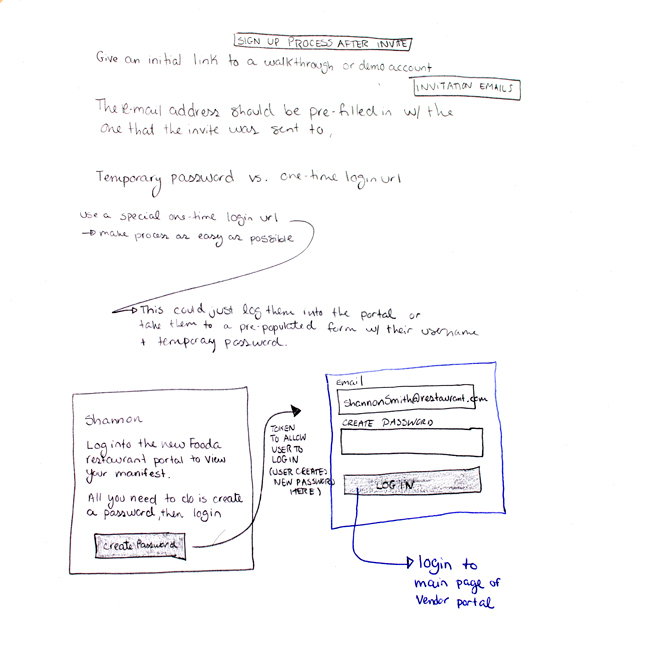 SIGN UP PROCESS AFTER INVITE
Give an initial link to a walkthrough or demo account
INVITATION EMAILS
The e-mail address should be pre-filled in w/ the
one that the invite was sent to,
Temporary password vs. one-time login url
use a special one-time login url
→ make process as easy as possible
→ This could just log them into the portal or
take them to a pre-populated form w/ their username
+ temporary password.
Shannon
Log into the new Fooda
restaurant portal to view
your manifest.
All you need to do is create
a password, then login
Create Password
TOKEN
TO ALLOW
USER TO
LOGIN
(USER CREATES
NEW PASSWORD
HERE)
EMAIL
ShannonSmith@restaurant.com
CREATE PASSWORD
LOGIN
login to
main page of
Vendor portal